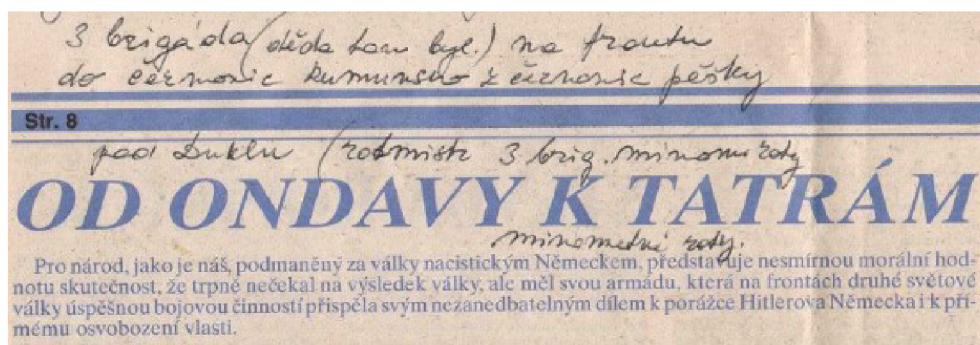 3 brigáda (děda tam byl.) na frontu
do čermonic Rumunsko z černonic pěšky
Str. 8
pod Duklu (rotmistr 3 brig. minometní roty
OD ONDAVY K TATRÁM
minometní roty.
Pro národ, jako je náš, podmaněný za války nacistickým Německem, představuje nesmírnou morální hod-
notu skutečnost, že trpně nečekal na výsledek války, ale měl svou armádu, která na frontách druhé světové
války úspěšnou bojovou činností přispěla svým nezanedbatelným dílem k porážce Hitlerova Německa i k pří-
mému osvobození vlasti.